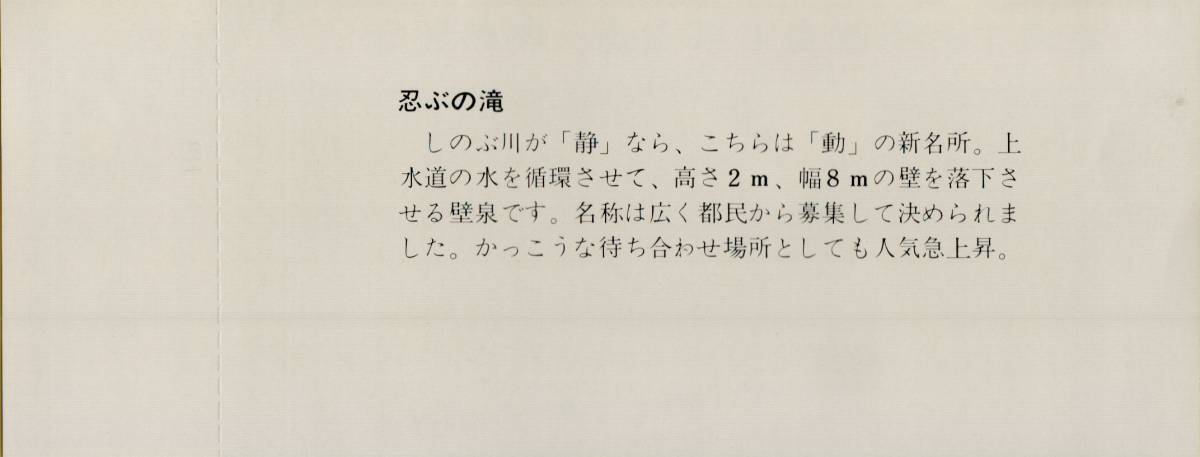 忍ぶの滝
しのぶ川が「静」なら、こちらは「動」の新名所。上
水道の水を循環させて、高さ2m、幅8mの壁を落下さ
せる壁泉です。名称は広く都民から募集して決められま
した。かっこうな待ち合わせ場所としても人気急上昇。